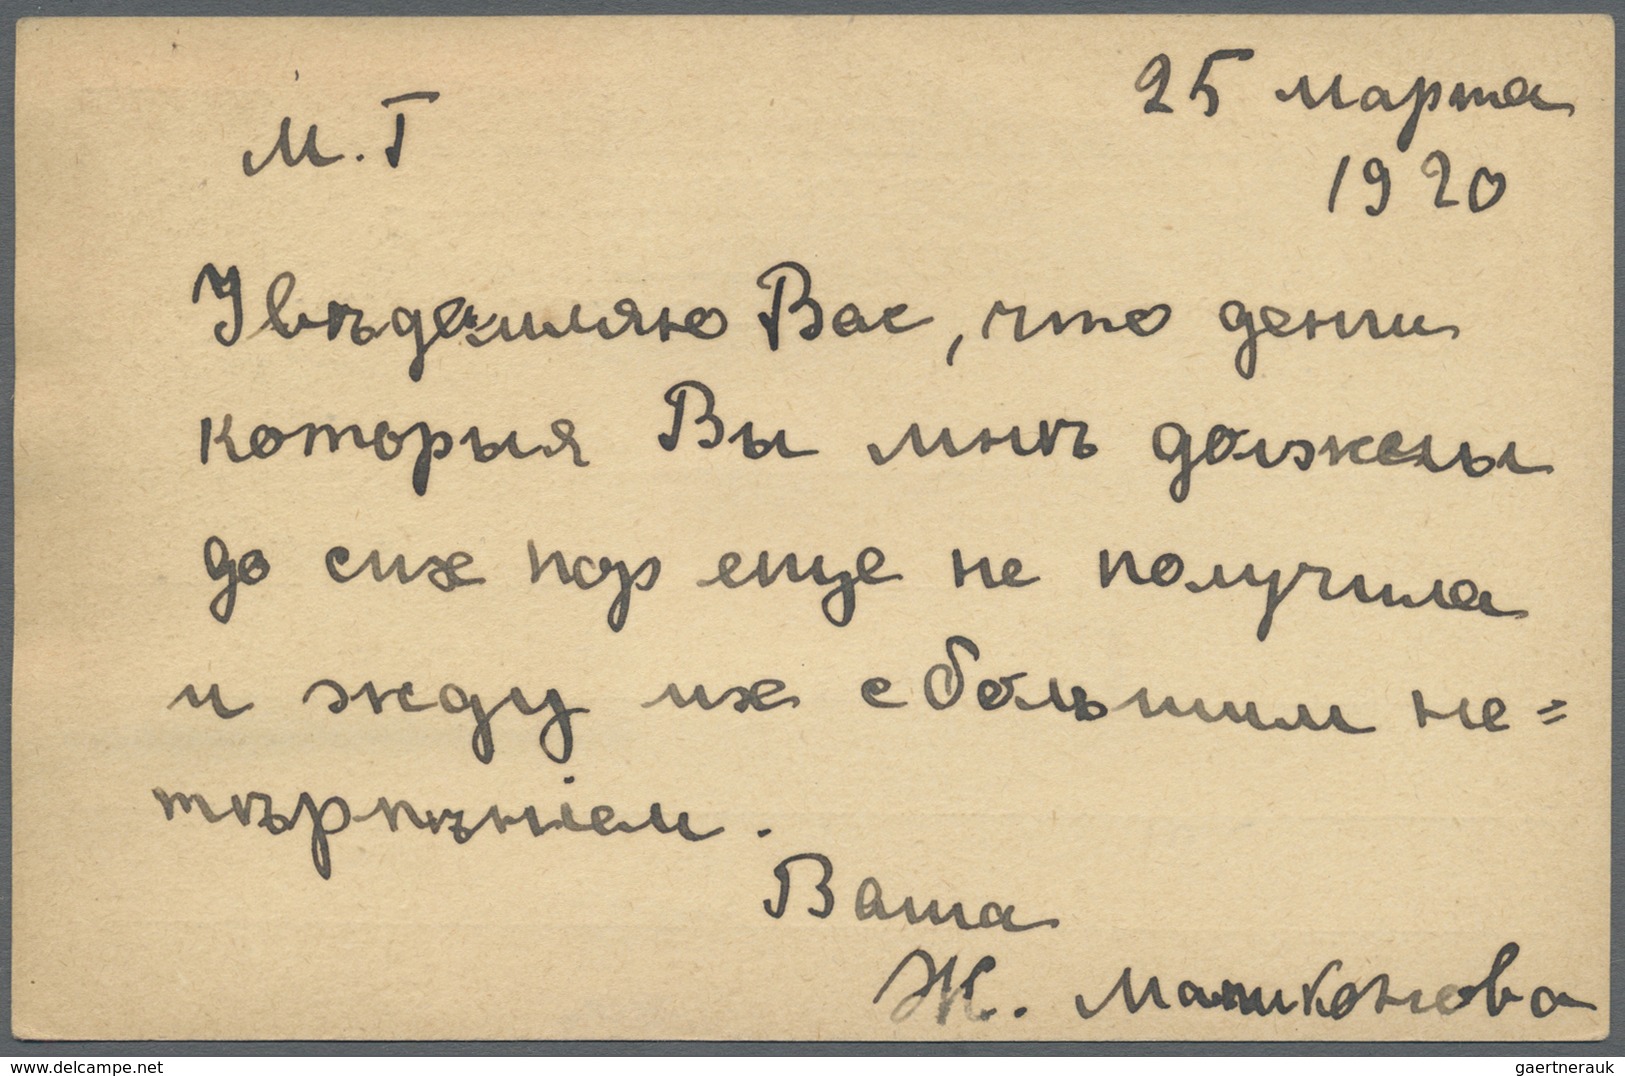 25 марта
М. Г
1920
Увѣдемляю Вас, что денги
которыя Вы мнѣ должены
до сих пор еще не получила
и жду их с большим не=
тѣрпѣнiем.
Ваша
Ж.
delcampe.net
gaertnerauk